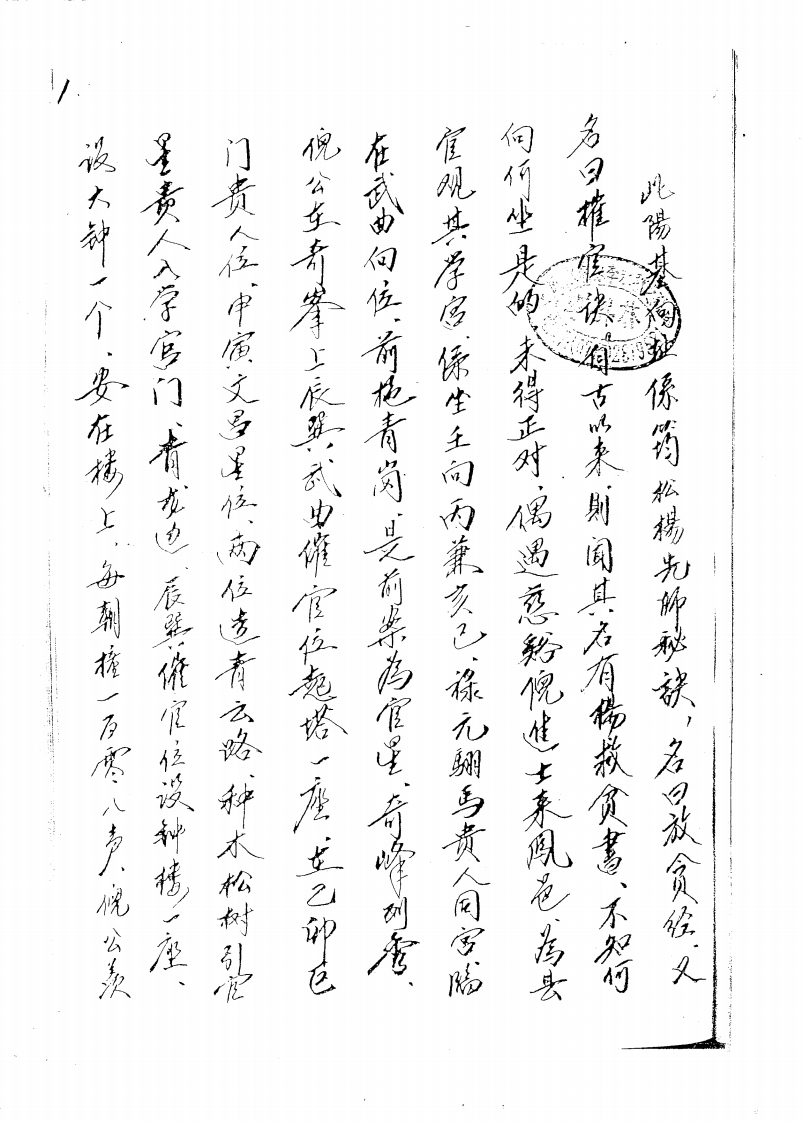 1
此陽基陶址係筠松楊先师秘訣，名曰放貧经、又
名曰摧官诀、自古以来、則闻其名有楊救貧書、不知何
向何坐是的、未得正对、偶遇慈谿倪進士来鳳邑、為县
官观其学宫、係坐壬向丙兼亥巳、禄元駬马贵人同宫、臨
在武曲向位、前拖青岗、是前案為官星、奇峰列秀、
倪公在奇峯上辰巽、武曲催官位起塔一座、在乙卯巨
门贵人位、申寅文昌星位、两位造青云路、种木松树引官
星贵人入学宫门、青龙边、辰巽催官位设钟楼一座、
设大钟一个、安在楼上、每朝撞一百零八声、倪公羡